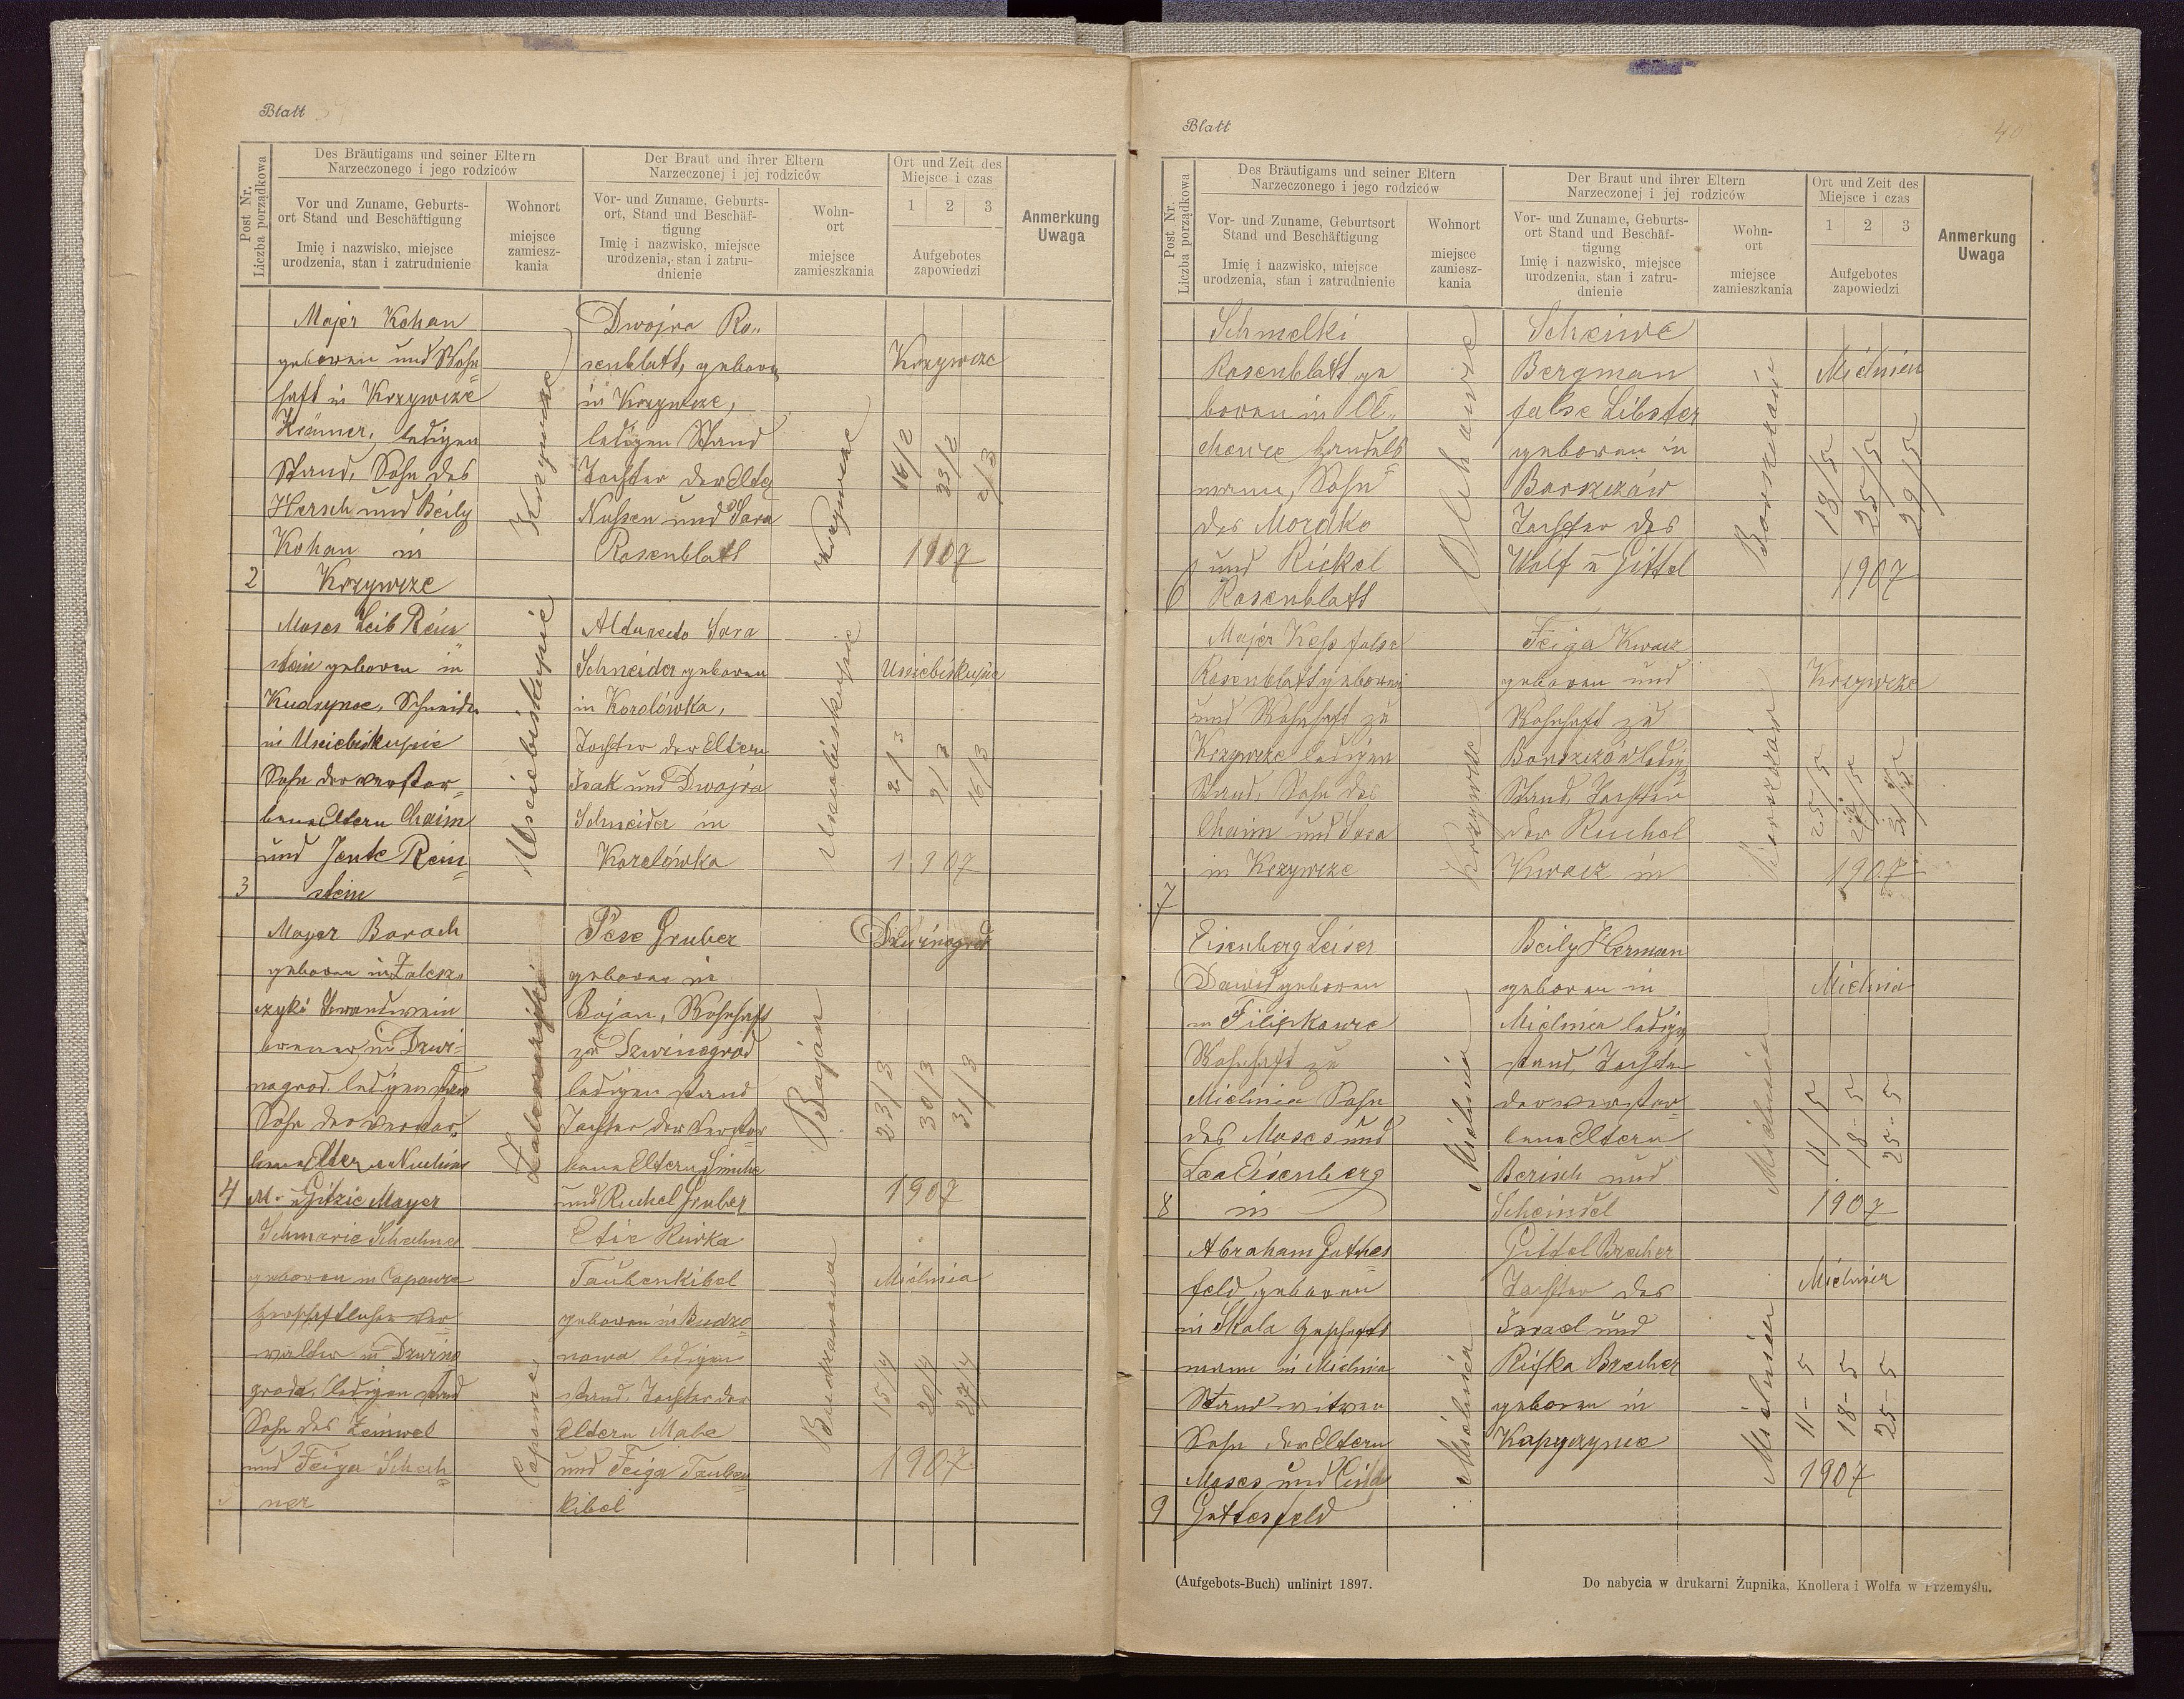 Blatt
Post Nr.
Liczba porządkowa
Des Bräutigams und seiner Eltern
Narzeczonego i jego rodziców
Vor und Zuname, Geburts-
ort Stand und Beschäftigung
Imię i nazwisko, miejsce
urodzenia, stan i zatrudnienie
Wohnort
miejsce
zamiesz-
kania
Der Braut und ihrer Eltern
Narzeczonej i jej rodziców
Vor- und Zuname, Geburts-
ort, Stand und Beschäf-
tigung
Imię i nazwisko, miejsce
urodzenia, stan i zatru-
dnienie
Wohn-
ort
miejsce
zamieszkania
Ort und Zeit des
Miejsce i czas
1 2 3
Aufgebotes
zapowiedzi
Anmerkung
Uwaga
2
Majer Kohan
geboren und Wohn=
haft in Krzywcze
Krämer, ledigen
Stand, Sohn des
Hersch und Beily
Kohan in
Krzywcze
Krzywcze
Dwojra Ro„
senblatt, geboren
in Krzywcze,
ledigen Stand
Tochter der Elte
Nussen und Sara
Rosenblatt
Krzywcze
Krzywcze
16/2 23/2 2/3
1907
3
Moses Leib Rein
stein geboren in
Kudrynce, Schneider
in Usciebiskupie
Sohn der verstor=
bene Eltern Chaim
und Jente Rein=
stein
Usciebiskupie
Sara
Schneider geboren
in Korolówka,
Tochter der Eltern
Isak und Dwojra
Schneider in
Korolówka
Usciebiskupie
Usciebiskupie
2/3 9/3 16/3
1907
4
Mayer Barach
geboren in Zalesz
czyki Brandwein
brenner in Dzwi=
nogrod. ledigen stand
Sohn der verstor„
bene Elter Nuchim
M. u Gitzie Mayer
Pese Gruber
geboren in
Bojan, Wohnhaft
zu Dzwinogrod
ledigen stand
Tochter der verstor
bene Eltern Simche
und Ruchel Gruber
Bojan
Dzwinogrod
23/3 30/3 31/3
1907
Schmarie Schechner
geboren in Capowce
herschaftlicher ver
walter in Dzwino
grod, ledigen stand
Sohn des Zeinwel
und Feiga Schech=
ner
Capowce
Etie Riwka
Taubenkibel
geboren in Budza=
nowa ledigen
stand, Tochter der
Eltern Male
und Feiga Tauben=
kibel
Budzanowa
Mielnica
15/4 20/4 27/4
1907
Blatt
40
Post Nr.
Liczba porządkowa
Des Bräutigams und seiner Eltern
Narzeczonego i jego rodziców
Vor- und Zuname, Geburtsort
Stand und Beschäftigung
Imię i nazwisko, miejsce
urodzenia, stan i zatrudnienie
Wohnort
miejsce
zamiesz-
kania
Der Braut und ihrer Eltern
Narzeczonej i jej rodziców
Vor- und Zuname, Geburts-
ort Stand und Beschäf-
tigung
Imię i nazwisko, miejsce
urodzenia, stan i zatru-
dnienie
Wohn-
ort
miejsce
zamieszkania
Ort und Zeit des
Miejsce i czas
1 2 3
Aufgebotes
zapowiedzi
Anmerkung
Uwaga
6
Schmelki
Rosenblatt ge
boren in Ol„
chowce handels
mann, Sohn
des Mordko
und Rickel
Rosenblatt
Olchowce
Scheiwe
Bergman
false Libster
geboren in
Borszczów
Tochter des
Wolf u Gittel
Borszczów
Mielnica
18/5 25/5 29/5
1907
7
Majer Koss false
Rosenblatt geboren
und Wohnhaft zu
Krzywcze ledigen
Stand, Sohn des
Chaim und Sara
in Krzywcze
Krzywcze
Feiga Kwacz
geboren und
Wohnhaft zu
Borszczów ledig
Stand, Tochter
der Ruchel
Kwacz in
Borszczów
Krzywcze
25/5
1907
8
Eisenberg Leiser
Dawid geboren
in Filipkowce
Wohnhaft zu
Mielnica Sohn
des Moses und
Lea Eisenberg
in
Mielnica
Beily Herman
geboren in
Mielnica ledigen
stand, Tochter
der verstor=
bene Eltern
Berisch und
Scheindel
Mielnica
Mielnica
11/5 18-5 25-5
1907
9
Abraham Gottes=
feld geboren
in Skala Geschäfts
mann in Mielnica
Stand witwer
Sohn der Eltern
Moses und
Gottesfeld
Mielnica
Gittel Brecher
Tochter des
Israel und
Rifka Brecher
geboren in
Kopyczynce
Mielnica
Mielnica
11-5 18-5 25-5
1907
(Aufgebots-Buch) unlinirt 1897.
Do nabycia w drukarni Żupnika, Knollera i Wolfa w Przemyślu.